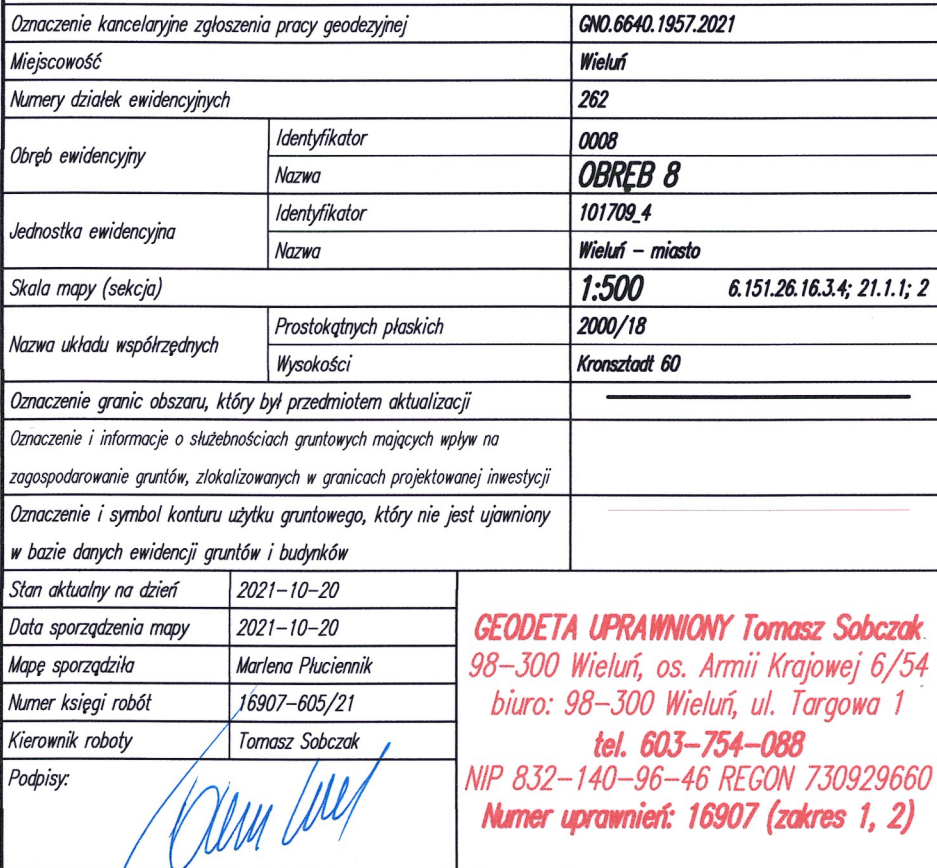 Oznaczenie kancelaryjne zgłoszenia pracy geodezyjnej GNO.6640.1957.2021
Miejscowość Wieluń
Numery działek ewidencyjnych 262
Obręb ewidencyjny Identyfikator 0008
Nazwa OBRĘB 8
Jednostka ewidencyjna Identyfikator 101709_4
Nazwa Wieluń – miasto
Skala mapy (sekcja) 1:500 6.151.26.16.3.4; 21.1.1; 2
Nazwa układu współrzędnych Prostokątnych płaskich 2000/18
Wysokości Kronsztadt 60
Oznaczenie granic obszaru, który był przedmiotem aktualizacji
Oznaczenie i informacje o służebnościach gruntowych mających wpływ na
zagospodarowanie gruntów, zlokalizowanych w granicach projektowanej inwestycji
Oznaczenie i symbol konturu użytku gruntowego, który nie jest ujawniony
w bazie danych ewidencji gruntów i budynków
Stan aktualny na dzień 2021-10-20
Data sporządzenia mapy 2021-10-20
Mapę sporządziła Marlena Płuciennik
Numer księgi robót 16907-605/21
Kierownik roboty Tomasz Sobczak
Podpisy:
GEODETA UPRAWNIONY Tomasz Sobczak
98-300 Wieluń, os. Armii Krajowej 6/54
biuro: 98-300 Wieluń, ul. Targowa 1
tel. 603-754-088
NIP 832-140-96-46 REGON 730929660
Numer uprawnień: 16907 (zakres 1, 2)